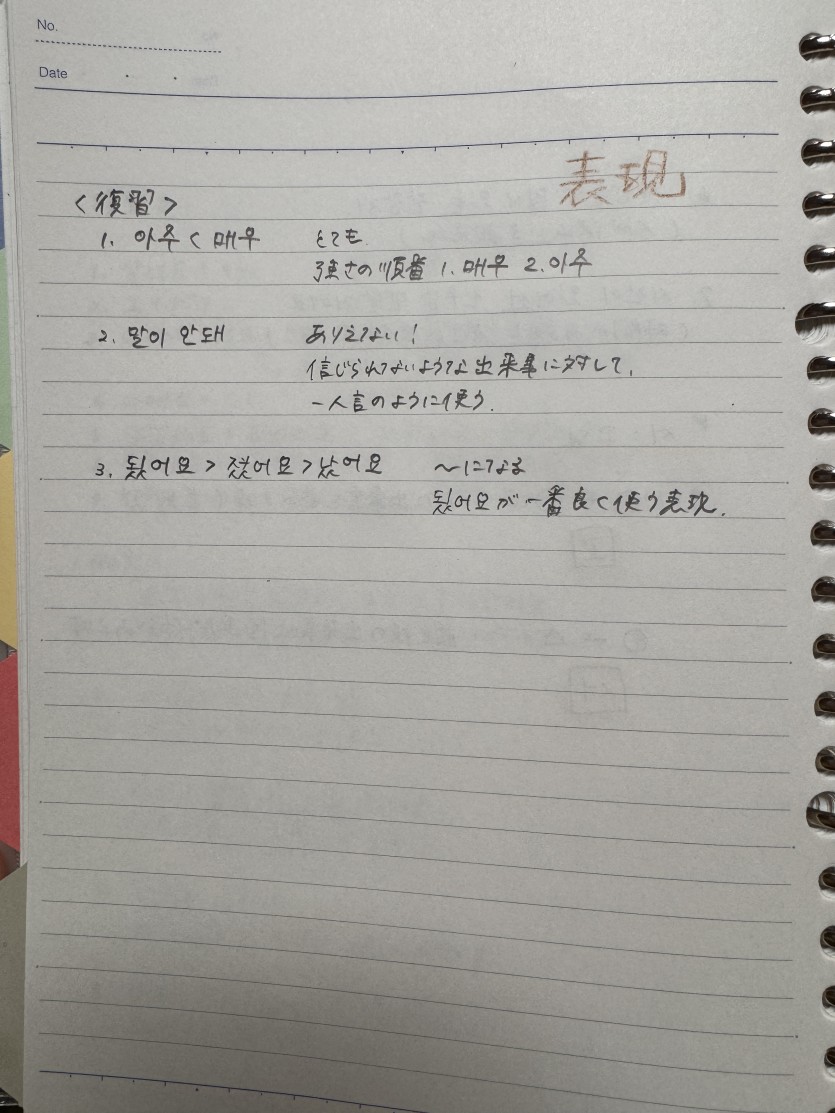 No.
Date
表現
<復習>
1. 아주 < 매우 とても.
強さの順番 1. 매우 2. 아주
2. 말이 안돼 ありえない!
信じられないような出来事に対して,
一人言のように使う.
3. 됬어요 > 졌어요 > 났어요 〜になる
됬어요が一番良く使う表現.